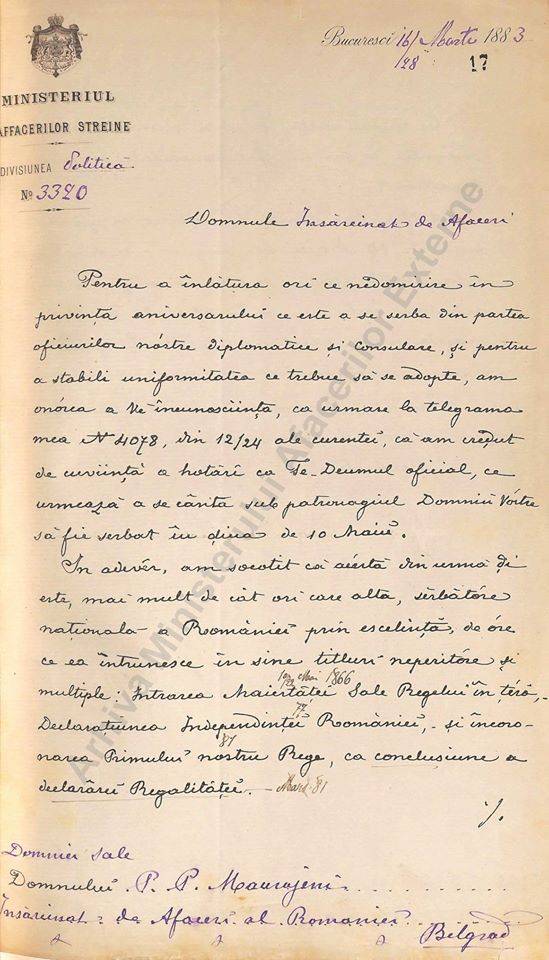 Bucuresci 16/28 Martie 1883
17
MINISTERIUL
AFFACERILOR STREINE
DIVISIUNEA Politică
No 3320
Domnule Însărcinat de Afaceri
Pentru a înlătura ori ce nedomirire în
privința aniversarului ce este a se serba din partea
oficiurilor nóstre diplomatice și consulare, și pentru
a stabili uniformitatea ce trebue să se adopte, am
onórea a Ve încunosciința, ca urmare la telegrama
mea No 4078, din 12/24 ale curentei, că am credut
de cuviință a hotărî ca Te-Deumul oficial, ce
urmează a se cânta sub patronagiul Domniei Vóstre
să fie serbat în diua de 10 Maiŭ.
In adevĕr, am socotit că acéstă din urmă di
este, mai mult de cât ori care alta, sĕrbătóre
națională a Românieĭ prin escelință, de óre
ce ea întrunesce în sine titluri neperitóre și
10/22 Mai 1866
multiple: Intrarea Maiestăței Sale Regelui în téră,
Declarațiunea Independințeĭ Românieĭ, - și încoro-
81
narea Primuluĭ nostru Rege, ca conclusiune a
declarărei Regalităței. - Mart 81
./.
Domniei Sale
Domnuluĭ P. P. Mavrojeni
Însărcinat de Afacerĭ al Românieĭ
Belgrad
Arhiva Ministerului Afacerilor Externe